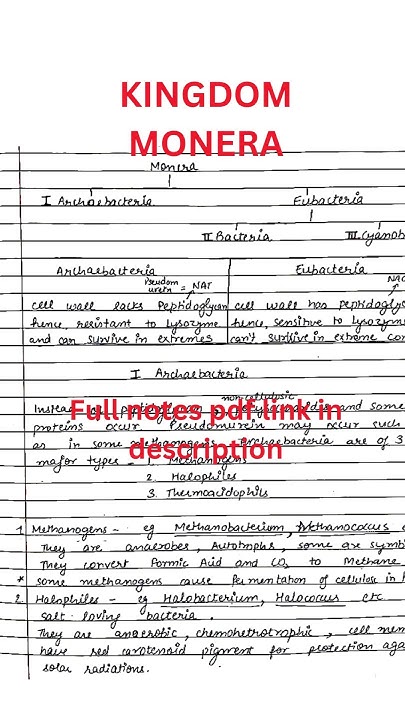 KINGDOM
MONERA
Monera
I Archaebacteria Eubacteria
II Bacteria III Cyanob
Archaebacteria Eubacteria
Pseudom
urein = NAT NAG
cell wall lacks Peptidoglycan cell wall has peptidoglyc
hence, resistant to lysozyme hence, sensitive to lysozym
and can survive in extremes can't survive in extreme con
I Archaebacteria
non cellulosic
Instead of peptidoglycan polysaccharides and some
Full notes pdf link in
proteins occur. Pseudomurein may occur such
description
as in some methanogens. Archaebacteria are of 3
major types - 1. Methanogens
2. Halophiles
3. Thermoacidophils
1 Methanogens - eg Methanobacterium, Methanococcus
They are anaerobes, Autotrophs, some are symbi
They convert Formic Acid and CO2 to Methane
* some methanogens cause fermentation of cellulose in
2. Halophiles - eg Halobacterium, Halococcus etc
salt loving bacteria.
They are anaerobic, chemohetrotrophic, cell mem
have red carotenoid pigment for protection aga
solar radiations.